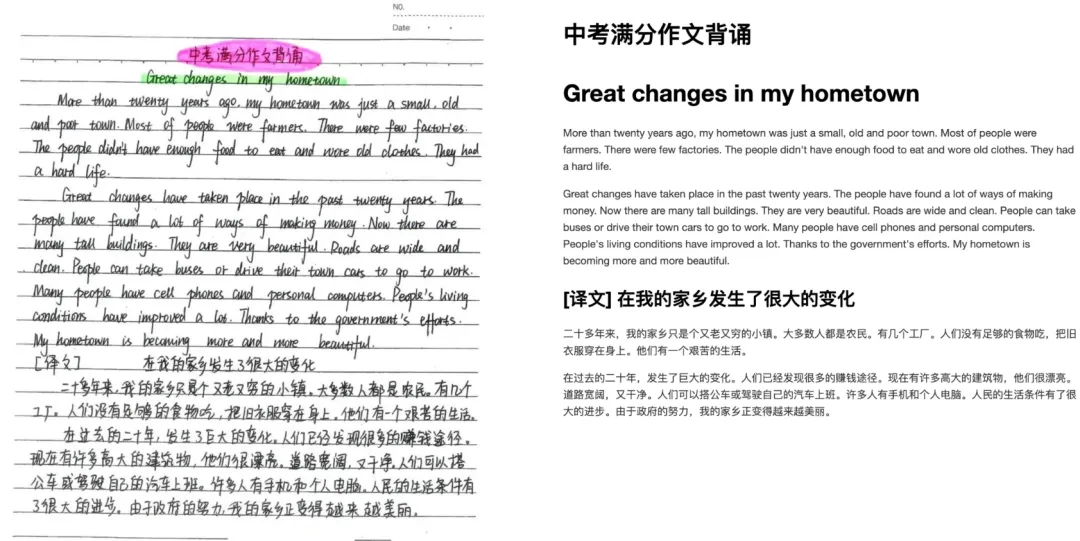 NO.
Date
中考满分作文背诵
Great changes in my hometown
More than twenty years ago, my hometown was just a small, old
and poor town. Most of people were farmers. There were few factories.
The people didn't have enough food to eat and wore old clothes. They had
a hard life.
Great changes have taken place in the past twenty years. The
people have found a lot of ways of making money. Now there are
many tall buildings. They are very beautiful. Roads are wide and
clean. People can take buses or drive their town cars to go to work.
Many people have cell phones and personal computers. People's living
conditions have improved a lot. Thanks to the government's efforts.
My hometown is becoming more and more beautiful.
[译文] 在我的家乡发生了很大的变化
二十多年来,我的家乡只是个又老又穷的小镇。大多数人都是农民。有几个
工厂。人们没有足够的食物吃,把旧衣服穿在身上。他们有一个艰苦的生活。
在过去的二十年,发生了巨大的变化。人们已经发现很多的赚钱途径。
现在有许多高大的建筑物,他们很漂亮。道路宽阔,又干净。人们可以搭
公车或驾驶自己的汽车上班。许多人有手机和个人电脑。人民的生活条件有
了很大的进步。由于政府的努力,我的家乡正变得越来越美丽。
中考满分作文背诵
Great changes in my hometown
More than twenty years ago, my hometown was just a small, old and poor town. Most of people were
farmers. There were few factories. The people didn't have enough food to eat and wore old clothes. They had
a hard life.
Great changes have taken place in the past twenty years. The people have found a lot of ways of making
money. Now there are many tall buildings. They are very beautiful. Roads are wide and clean. People can take
buses or drive their town cars to go to work. Many people have cell phones and personal computers.
People's living conditions have improved a lot. Thanks to the government's efforts. My hometown is
becoming more and more beautiful.
[译文] 在我的家乡发生了很大的变化
二十多年来,我的家乡只是个又老又穷的小镇。大多数人都是农民。有几个工厂。人们没有足够的食物吃,把旧
衣服穿在身上。他们有一个艰苦的生活。
在过去的二十年,发生了巨大的变化。人们已经发现很多的赚钱途径。现在有许多高大的建筑物,他们很漂亮。
道路宽阔,又干净。人们可以搭公车或驾驶自己的汽车上班。许多人有手机和个人电脑。人民的生活条件有了很
大的进步。由于政府的努力,我的家乡正变得越来越美丽。